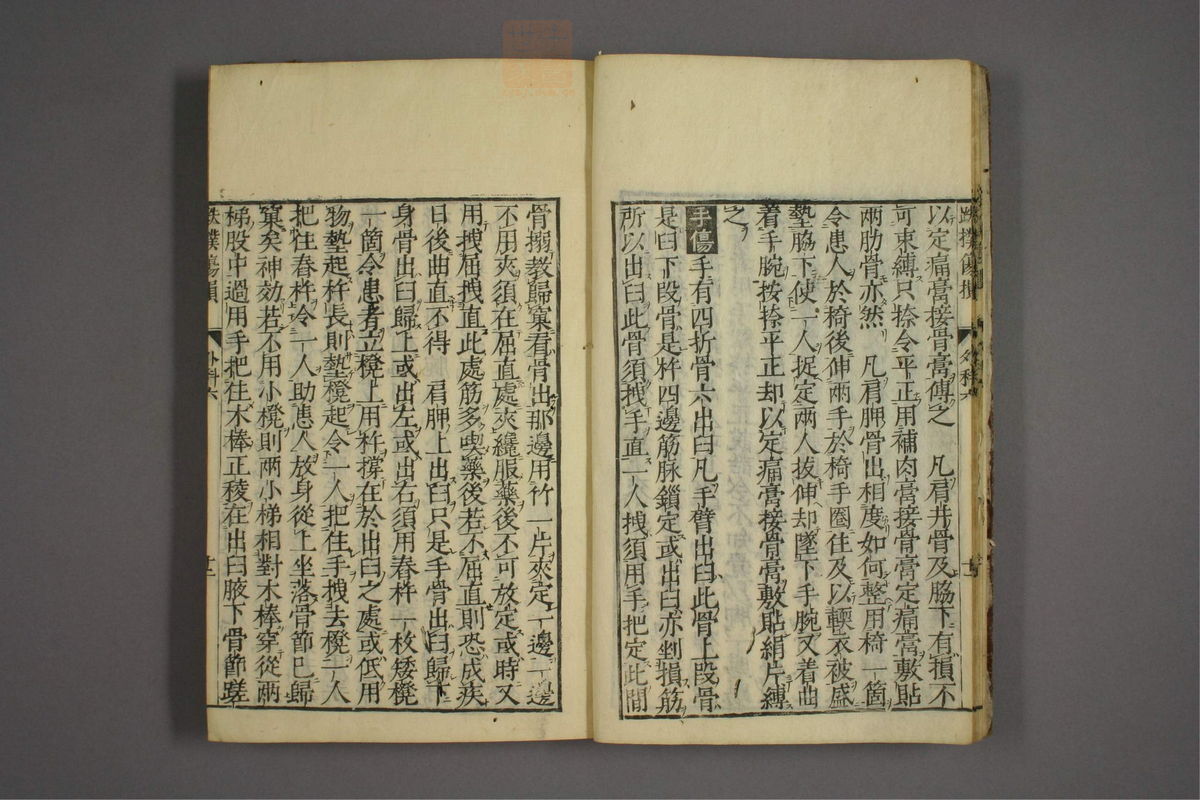 跌撲傷損
外科六
以定痛膏接骨膏傅之　凡肩井骨及脇下有損不
可束縛只捺令平正用補肉膏接骨膏定痛膏敷貼
兩肋骨亦然　凡肩胛骨出相度如何整用椅一箇
令患人於椅後伸兩手於椅手圈住及以輭衣被盛
墊脇下使一人捉定兩人拔伸却墜下手腕又着曲
着手腕按捺平正却以定痛膏接骨膏敷貼絹片縛
之
手傷　手有四折骨六出臼凡手臂出臼此骨上段骨
是臼下段骨是杵四邊筋脉鎖定或出臼亦剉損筋
所以出臼此骨須拽手直一人拽須用手把定此間
骨搦教歸窠看骨出那邊用竹一片夾定一邊一邊
不用夾須在屈直處夾纔服藥後不可放定或時又
用拽屈拽直此處筋多喫藥後若不屈直則恐成疾
日後曲直不得　肩胛上出臼只是手骨出臼歸下
身骨出臼歸上或出左或出右須用舂杵一枚矮櫈
一箇令患者立櫈上用杵撐在於出臼之處或低用
物墊起杵長則墊櫈起令一人把住手拽去櫈一人
把住舂杵令一人助患人放身從上坐落骨節已歸
窠矣神効若不用小櫈則兩小梯相對木棒穿從兩
梯股中過用手把住木棒正稜在出臼腋下骨節蹉
跌撲傷損
外科六
廿二